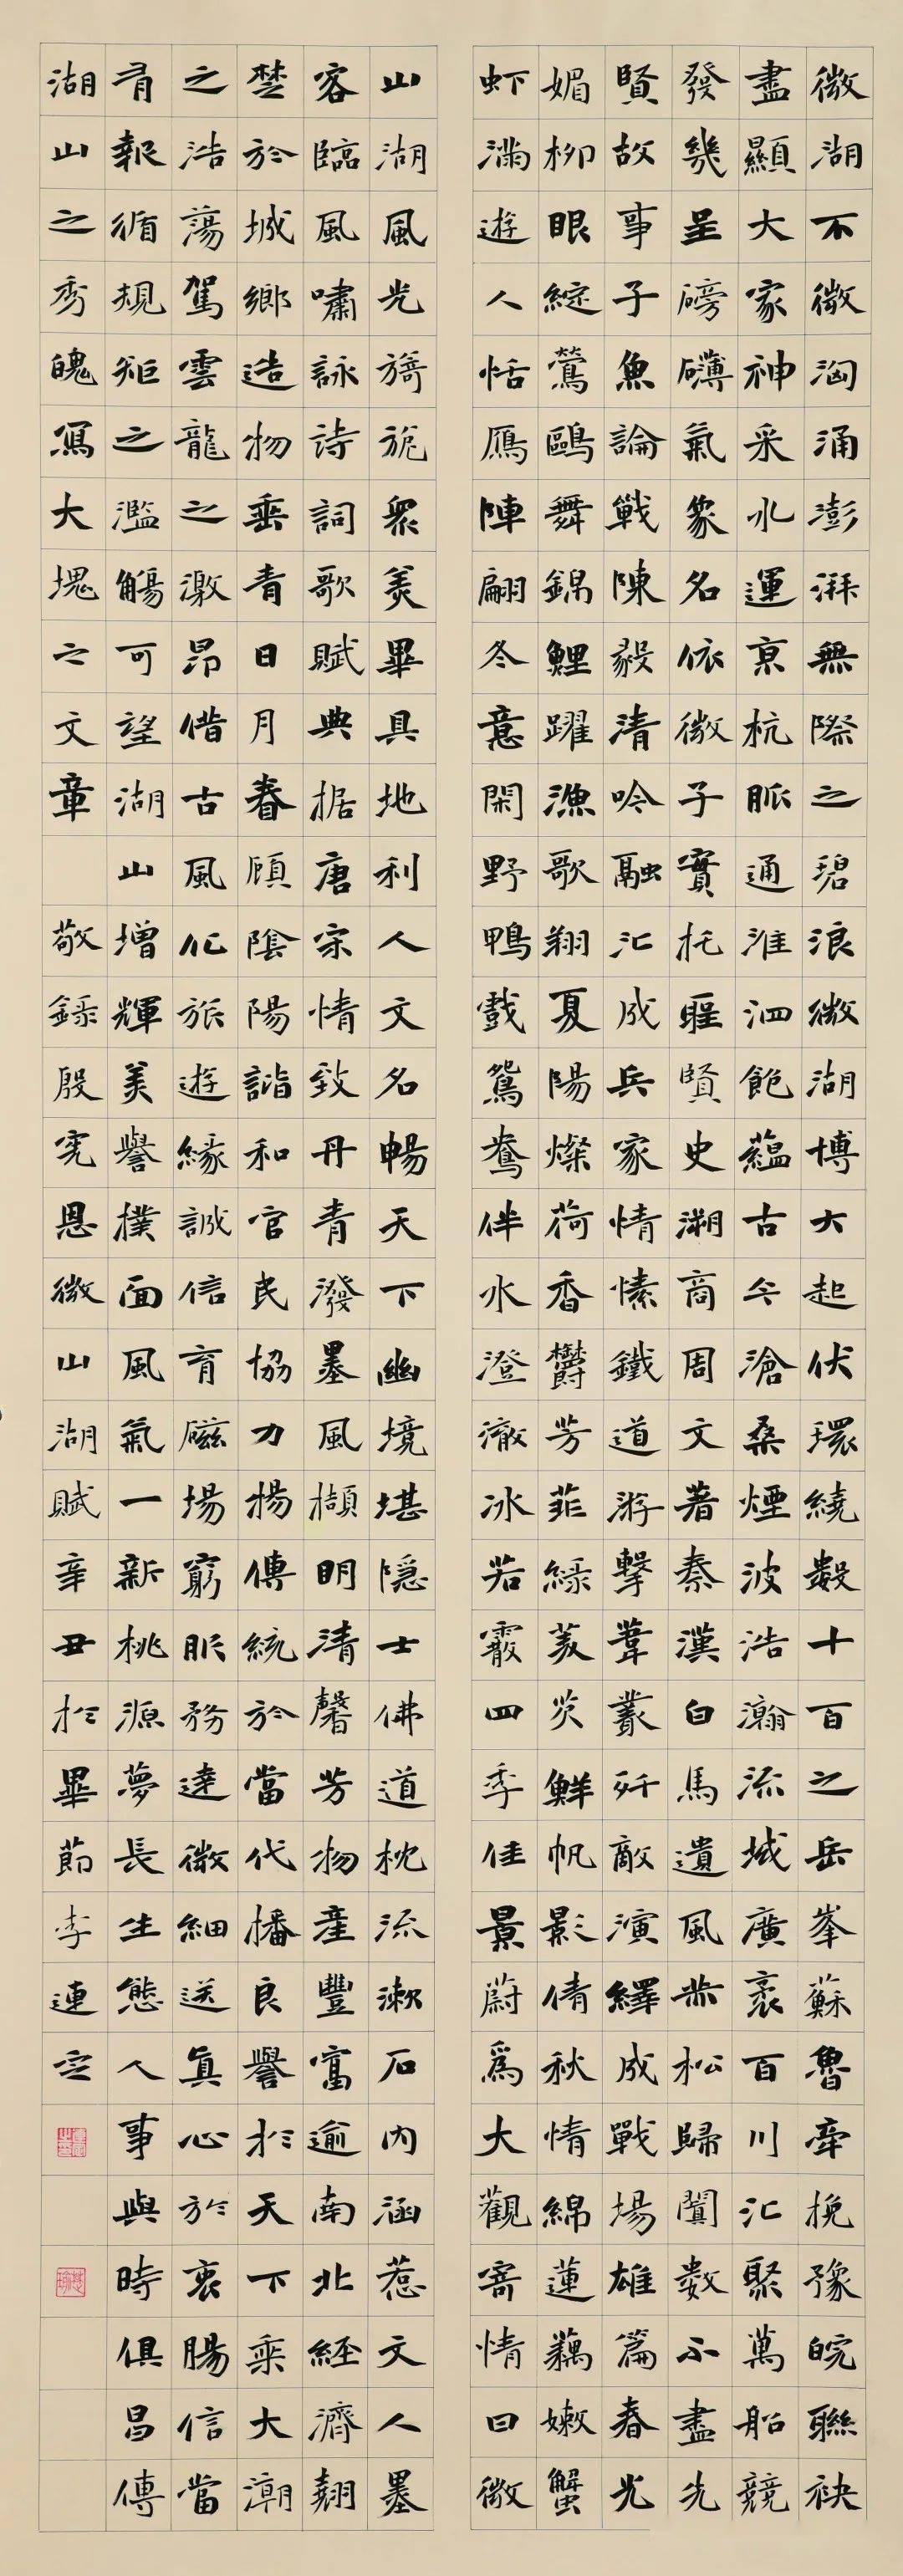 微湖不微洶涌澎湃無際之碧浪微湖博大起伏環繞數十百之岳峯蘇魯牽挽豫皖聯袂
盡顯大家神采水運京杭脈通淮泗飽蘊古今滄桑煙波浩瀚流域廣袤百川汇聚萬船競
發幾呈磅礴氣象名依微子實托聖賢史溯商周文著秦漢白馬遺風赤松歸闐數不盡先
賢故事子魚論戰陳毅清吟融汇成兵家情愫鐵道游擊葦叢歼敵演繹成戰場雄篇春光
媚柳眼綻鶯鷗舞錦鯉躍漁歌翔夏陽燦荷香欝芳菲綠菱芡鮮帆影倩秋情綿蓮藕嫩蟹
虾滿遊人恬鴈陣翩冬意閑野鴨戲鴛鴦伴水澄澈冰若霰四季佳景蔚爲大觀寄情曰微
山湖風光旖旎衆美畢具地利人文名暢天下幽境堪隱士佛道枕流漱石内涵惹文人墨
客臨風嘯詠詩詞歌賦典据唐宋情致丹青潑墨風擷明清馨芳物產豐富逾南北經濟翹
楚於城鄉造物垂青日月眷顧陰陽諧和官民協力楊傳統於當代播良譽於天下乘大潮
之浩蕩駕雲龍之激昂借古風化旅遊緣誠信育磁場窮脈務達微細送真心於衷腸信當
有報循規矩之濫觴可望湖山增輝美譽撲面風氣一新桃源夢長生態人事與時俱昌傳
湖山之秀魄寫大塊之文章
敬錄殷憲恩微山湖賦辛丑於畢節李連宝